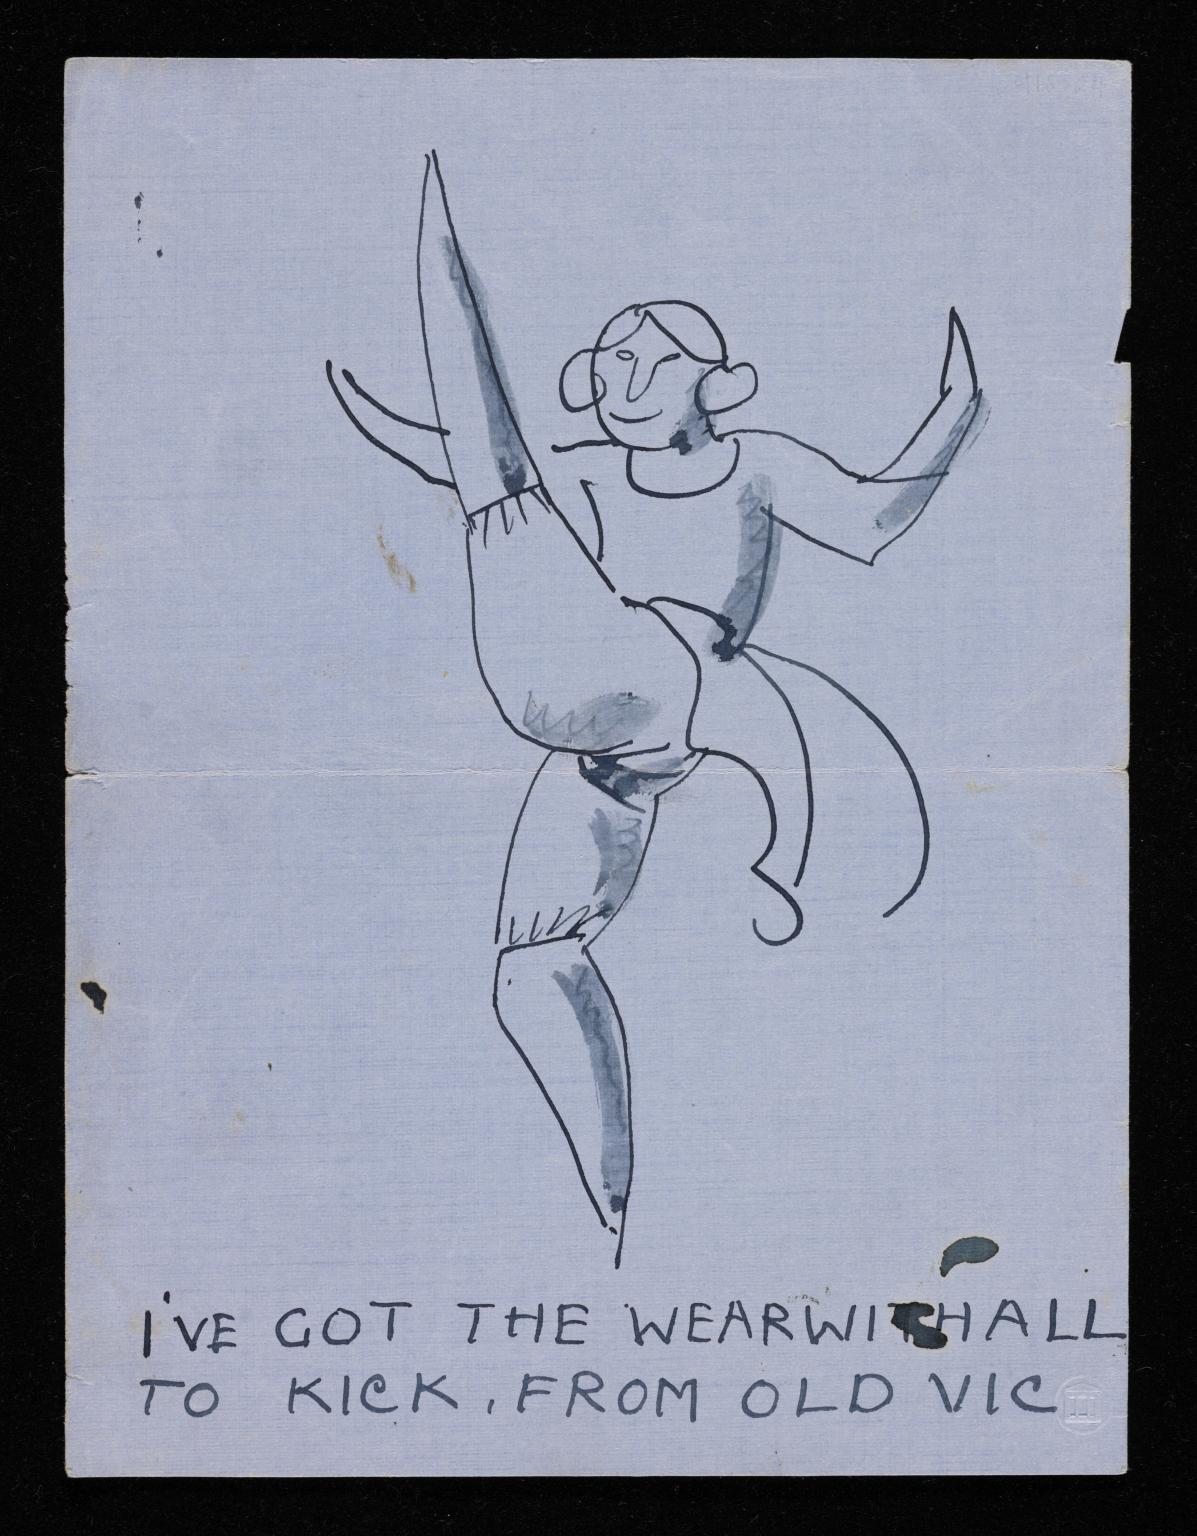 I'VE GOT THE WEARWITHALL
TO KICK, FROM OLD VIC